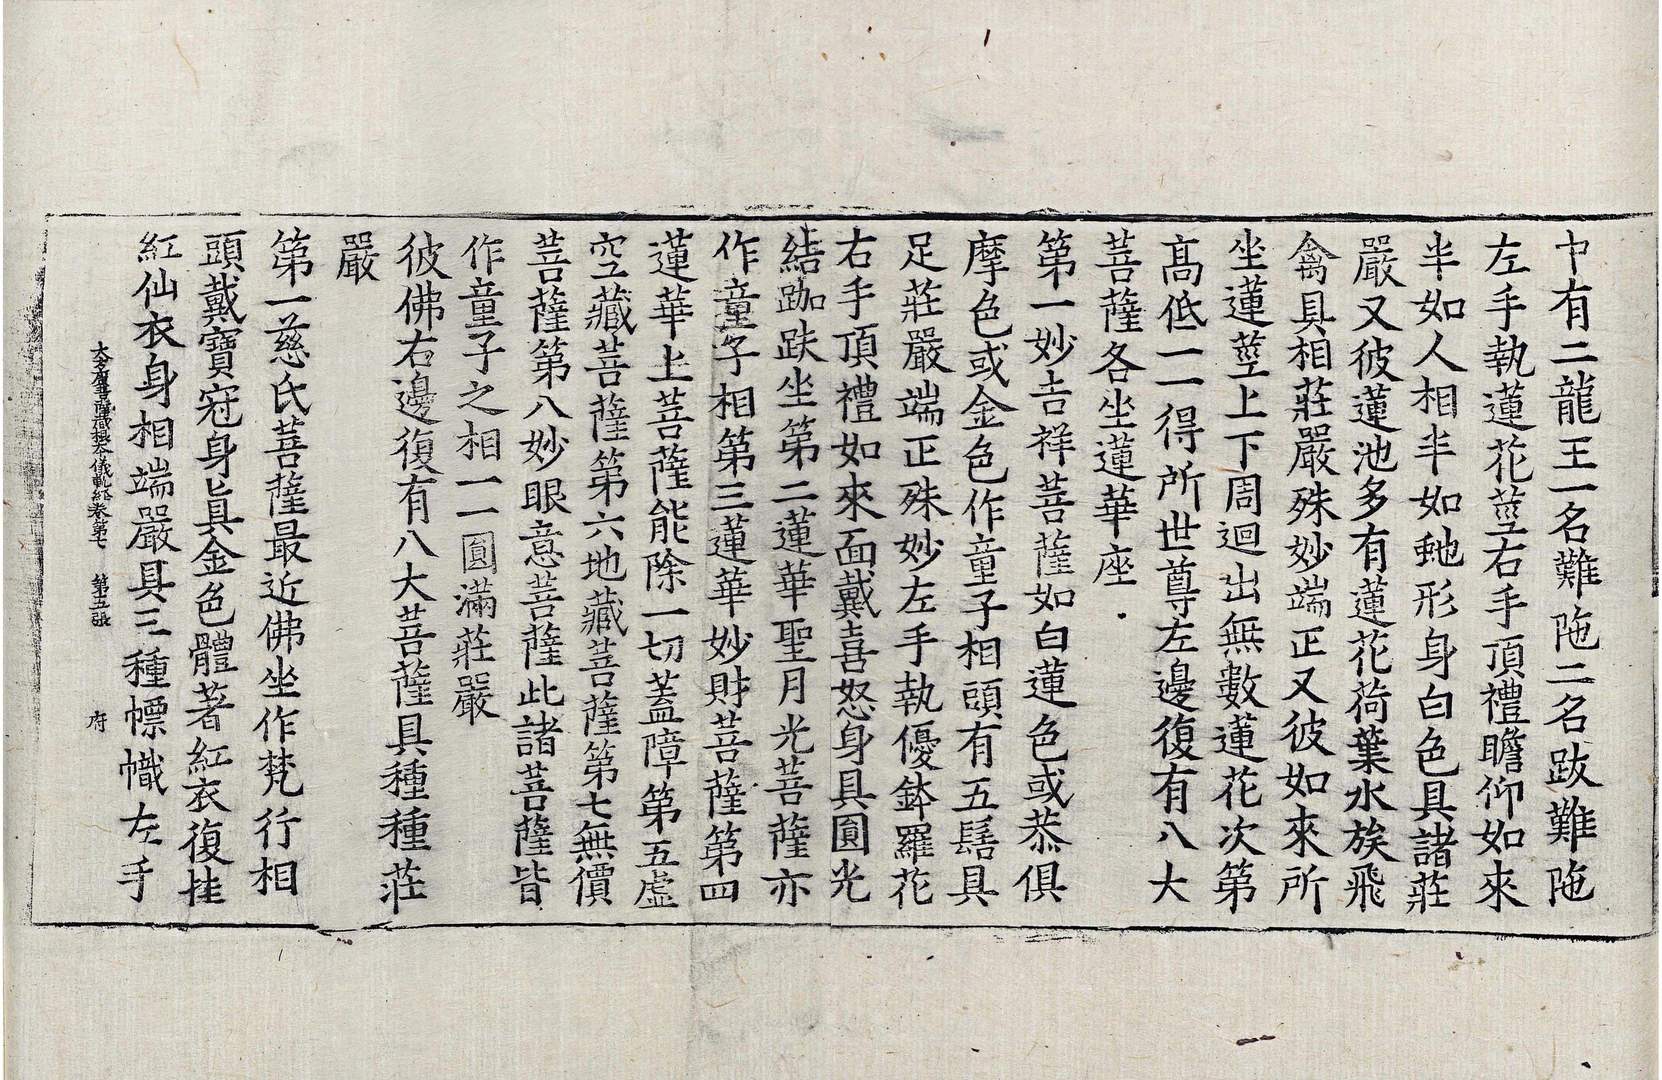 中有二龍王一名難陁二名跋難陁
左手執蓮花莖右手頂禮瞻仰如來
半如人相半如虵形身白色具諸莊
嚴又彼蓮池多有蓮花荷葉水族飛
禽具相莊嚴殊妙端正又彼如來所
坐蓮莖上下周迴出無數蓮花次第
高低一一得所世尊左邊復有八大
菩薩各坐蓮華座
第一妙吉祥菩薩如白蓮色或恭俱
摩色或金色作童子相頭有五髻具
足莊嚴端正殊妙左手執優鉢羅花
右手頂禮如來面戴喜怒身具圓光
結跏趺坐第二蓮華聖月光菩薩亦
作童子相第三蓮華妙財菩薩第四
蓮華上菩薩能除一切蓋障第五虛
空藏菩薩第六地藏菩薩第七無價
菩薩第八妙眼意菩薩此諸菩薩皆
作童子之相一一圓滿莊嚴
彼佛右邊復有八大菩薩具種種莊
嚴
第一慈氏菩薩最近佛坐作梵行相
頭戴寶冠身真金色體著紅衣復挂
紅仙衣身相端嚴具三種幖幟左手
大方廣菩薩藏根本儀軌經卷第七 第五張 府